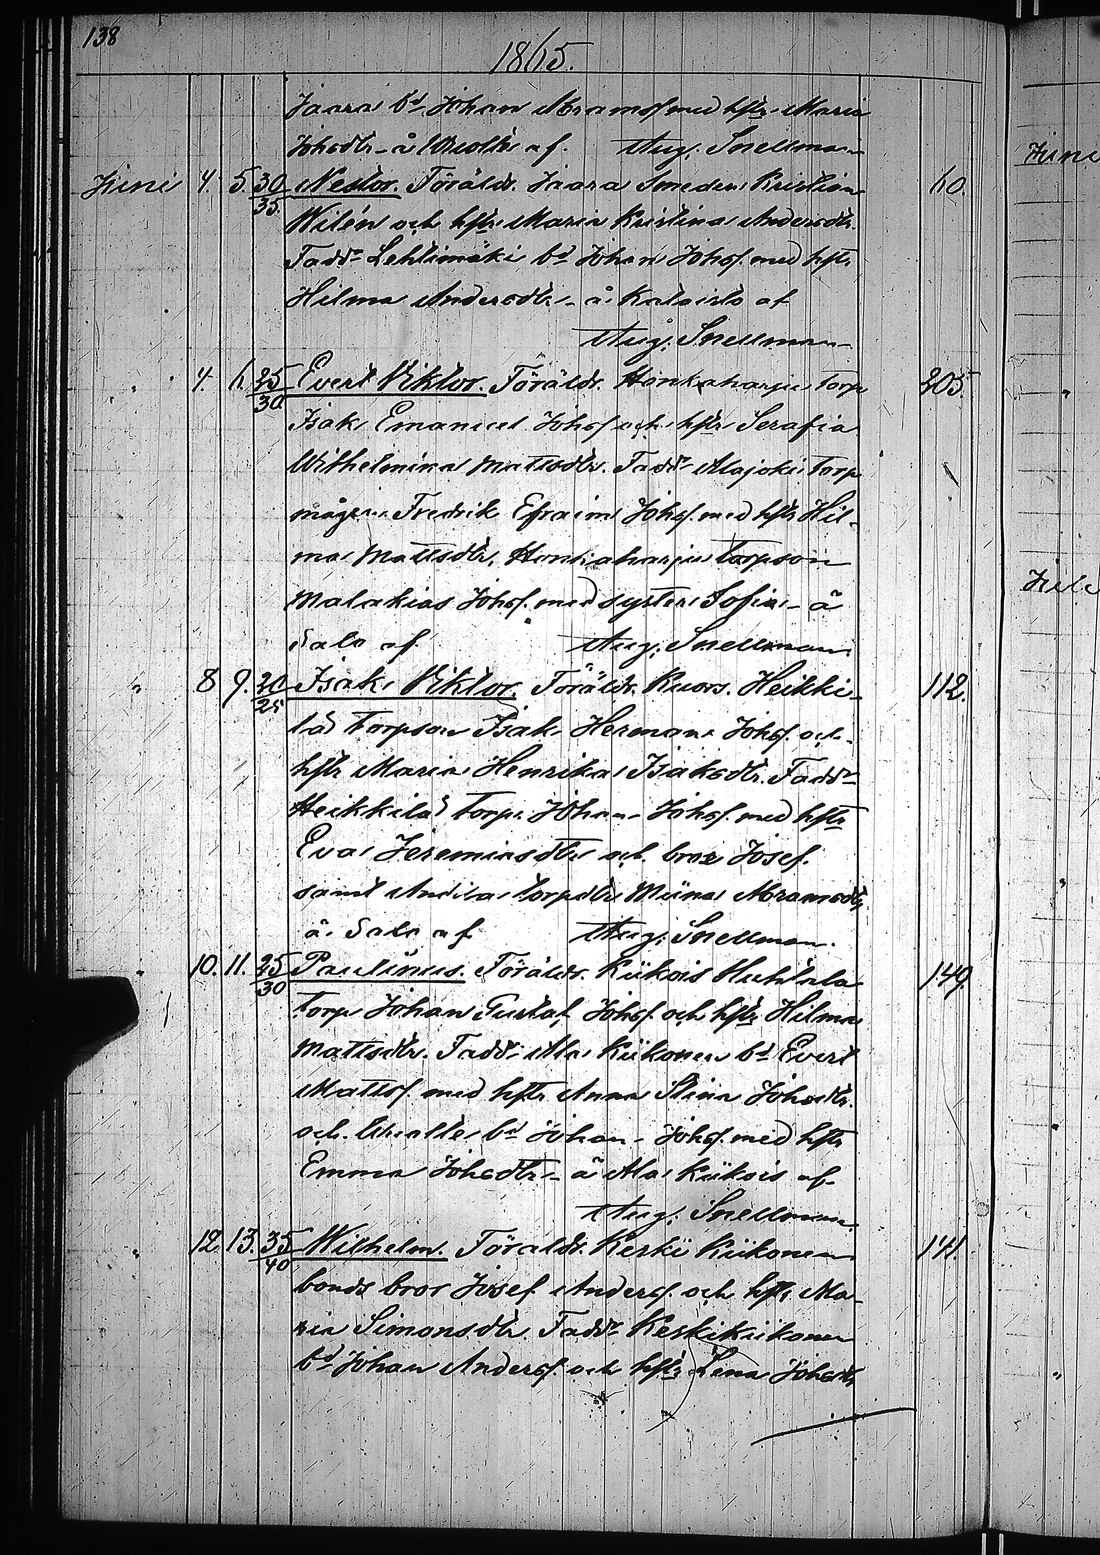 138
1865.
Jaara bd Johan Abramsf med hstr Maria
Johsdtr - å af. Aug. Snellman
Juni 4. 5. 30/35. Nestor. Föräldr. Jaara Smeden Kristian 60.
Wilén och hstr Maria Kristina Andersdtr.
Fadd. Lehtimäki bd Johan Johsf. med hstr
Hilma Andersdtr - å Kalaisto af
Aug. Snellman
" 4. 6. 25/30 Evert Viktor. Föräldr. Honkaharju torp 205.
Isak Emanuel Johsf och hstr Serafia
Wilhelmina Mattsdtr. Fadd. Alajoki torp
mågen Fredrik Efraim Johsf. med hstr Hil-
ma Mattsdtr, Honkaharju torpson
Malakias Johsf. med syster Sofia - å
Salo af Aug. Snellman.
" 8 9. 20/25 Isak Viktor. Föräldr. Kuors. Heikki- 112.
lä torpson Isak Herman Johsf. och
hstr Maria Henrika Isaksdtr. Fadd.
Heikkilä torp. Johan Johsf. med hstr
Eva Jeremiasdtr och bror Josef.
samt Andila torpdtr Miina Abramsdtr
å Salo af Aug. Snellman.
" 10. 11. 25/30 Paulinus. Föräldr. Kiikois Huhtala 149.
torp Johan Gustaf Johsf och hstr Hilma
Mattsdtr. Fadd. Ala Kiikonen bd Evert
Mattsf. med hstr Anna Stina Johsdtr.
och bd Johan Johsf. med hstr
Emma Johsdtr - å Ala Kiikois af
Aug. Snellman.
" 12. 13. 35/40 Wilhelm. Föräldr. Keski Kiikonen 141.
bonds bror Josef Andersf. och hstr Ma-
ria Simonsdtr. Fadd. Keskikiikonen
bd Johan Andersf. och hstr Lena Johsdtr
Juni
"
Juli
"
"
"